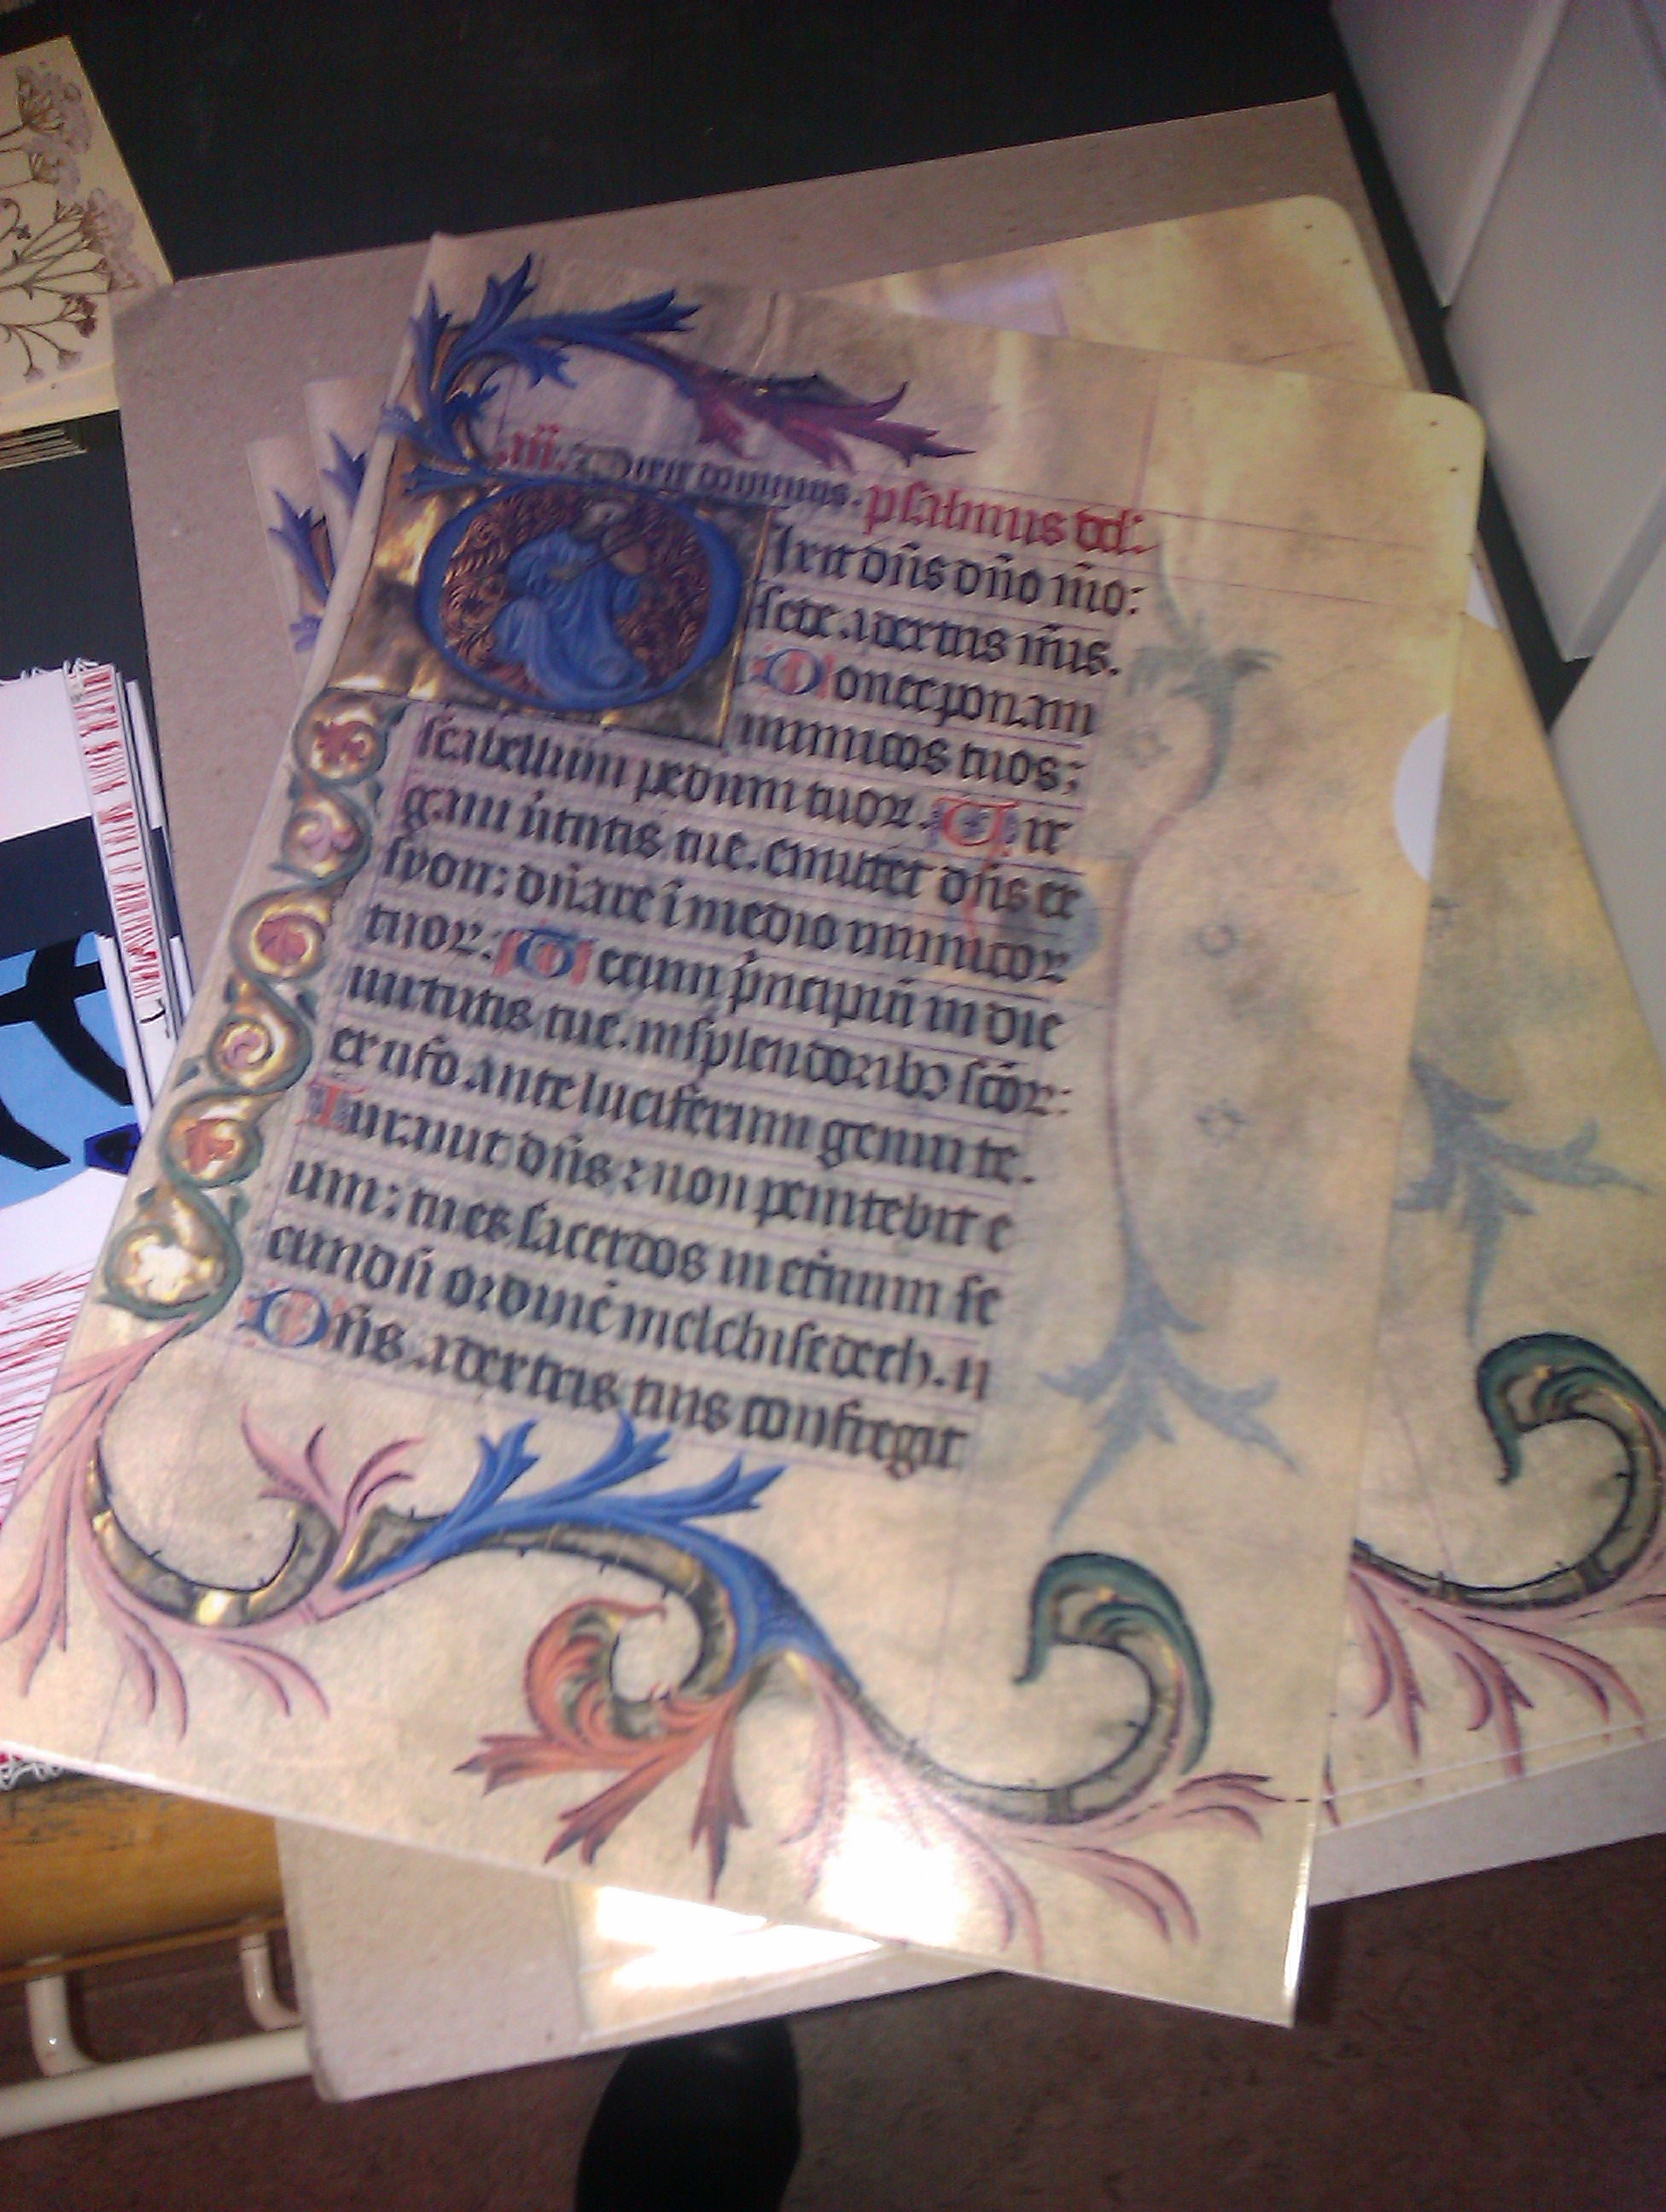 añ. Dixit dominus. psalmus dd̄.
Ixit dñs dño mō:
sede a dextris mīs.
Donec ponam
inimicos tuos:
scabellum pedum tuoꝝ. Uir
gam ūtutis tue. emittet dñs ex
syon: dñare ī medio inimicoꝝ
tuoꝝ: Tecum p̄ncipiū in die
uirtutis tue. in splendoribꝫ scōꝝ:
ex uto ante luciferum genui te.
Iurauit dñs ⁊ non penitebit e
um: tu es sacerdos in et̄num se
cundū ordinē melchisedech.
Dñs a dextris tuis confregit